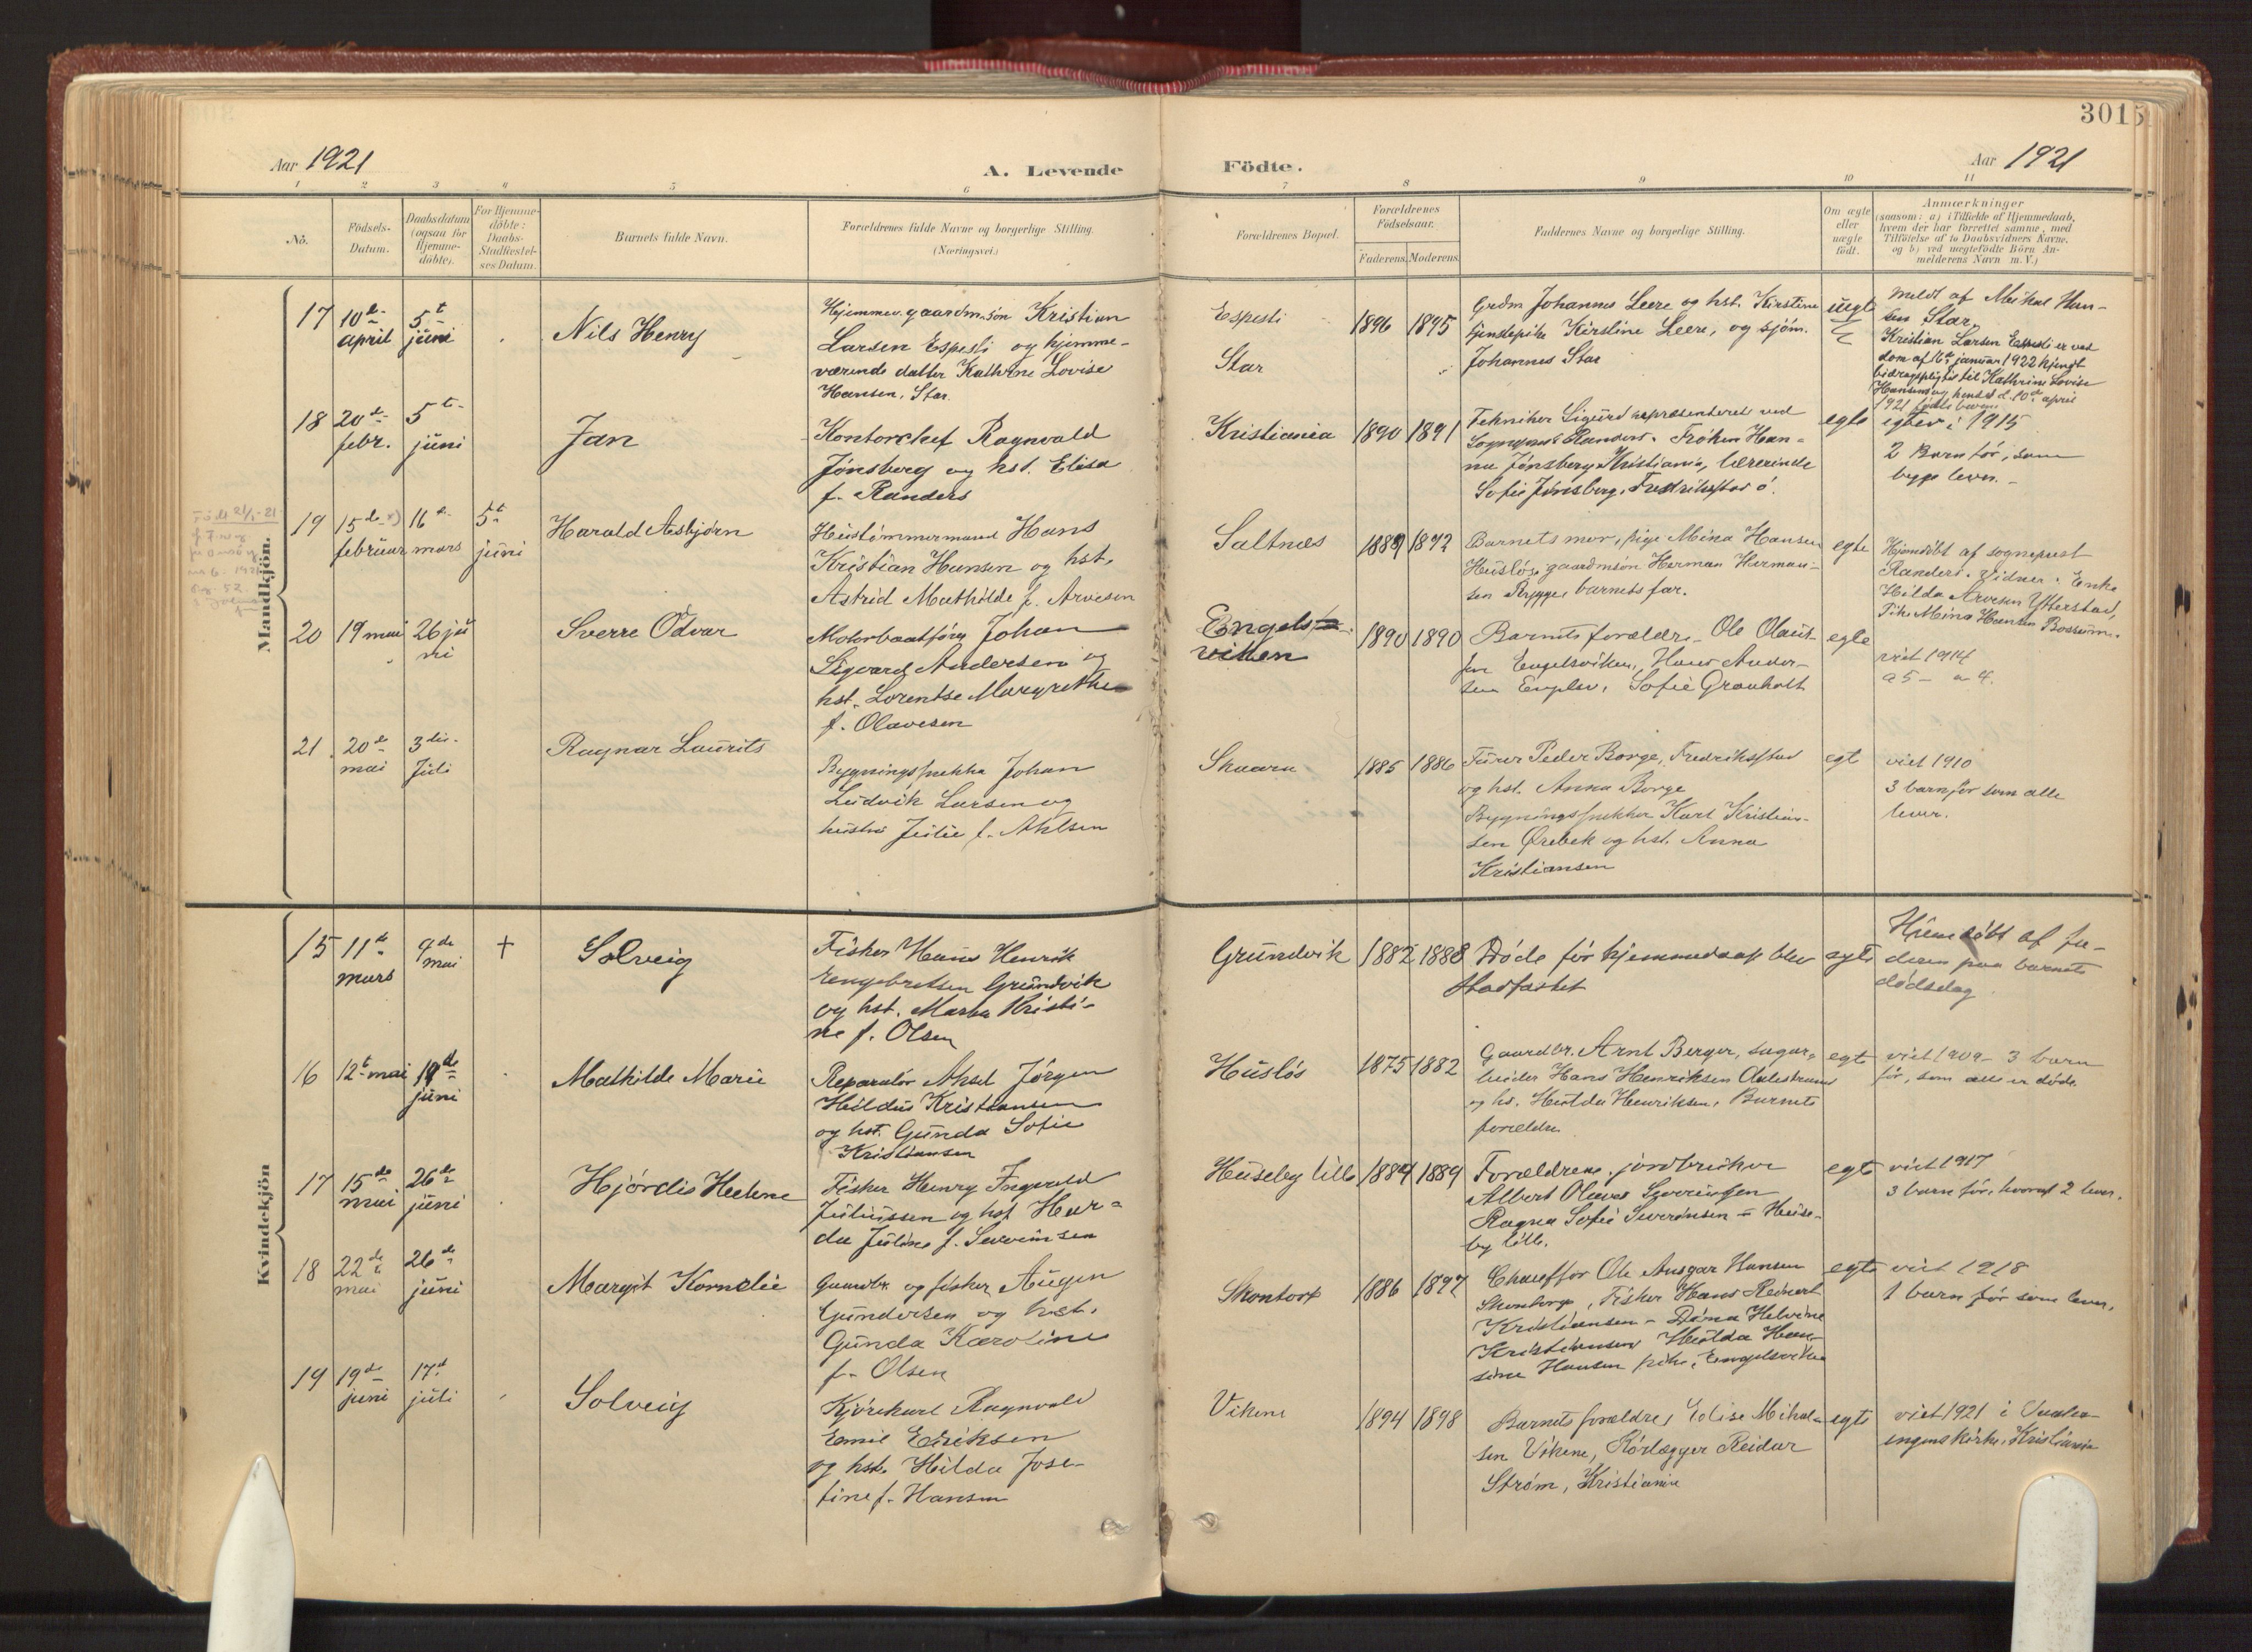 3015
Aar 1921
A. Levende
Födte.
Aar 1921
1 2 3 4 5 6 7 8 9 10 11
No.
Födsels-
Datum.
Daabsdatum
(ogsaa for
Hjemme-
döbte).
For Hjemme-
döbte:
Daabs-
Stadfæstel-
ses Datum.
Barnets fulde Navn.
Forældrenes fulde Navne og borgerlige Stilling.
(Næringsvei.)
Forældrenes Bopæl.
Forældrenes
Födselsaar.
Faderens. Moderens.
Faddernes Navne og borgerlige Stilling.
Om ægte
eller
uægte
födt.
Anmærkninger
(saasom: a) i Tilfælde af Hjemmedaab,
hvem der har forrettet samme, med
Tilföielse af to Daabsvidners Navne,
og b) ved uægtefödte Börn An-
melderens Navn m. V.)
Mandkjön.
17
10de april
5t juni
Nils Henry
Hjemmev. gaardm.søn Kristian
Larsen Espesli og hjemme-
værende datter Kathrine Lovise
Hansen, Star.
Espesli
Star
1896 1895
Grdm Johannes Leere og hst. Kirstine
tjenstepike Kirstine Leere, og sjöm.
Johannes Star
uegte
Meldt af Mikal Han-
sen Star,
Kristian Larsen Espesli er ved
dom af 16de januar 1922 kjengt
bidragspligtig til Kathrine Lovise
Hansens d. 10de april
1921 födte barn
18
20de febr.
5t juni
Jan
Kontorchef Ragnvald
Jönsberg og hst. Elisa
f. Randers
Kristiania
1890 1891
Tekniker Sigurd repræsenteret ved
Sogneprest Randers. Fröken Han-
na Jönsberg Kristiania, lærerinde
Sofie Jönsberg, Fredrikstad ö.
egte
egtev. i 1915
2 Barn för, som
begge lever.
19
15de februar
16de mars
5t juni
Harald Asbjørn
Hustömmermand Hans
Kristian Hansen og hst.
Astrid Mathilde f. Arvesen
Saltnæs
1889 1892
Barnets mor, pige Mina Hansen
Huslös gaardmsön Herman Herman-
sen Rygge, barnets far.
egte
Hjemdöbt af sogneprest
Randers. Vidner: Enke
Hilda Arvesen Ytterstad,
Pike Mina Hansen Bossum.
20
19 mai
26 juni
Sverre Odvar
Motorbaatförer Johan
Sigvard Andersen og
hst. Lorentse Margrethe
f. Olavesen
Engels-
viken
1890 1890
Barnets forældre, Ole Olaus-
sen Engelsviken, Hans Ander-
sen Engelsv, Sofie Granholt
egte
viet 1914
a 5 - a 4.
21
20de mai
3die Juli
Ragnar Laurits
Bygningssnekker Johan
Ludvik Larsen og
hustru Julie f. Ahlsen
Skaara
1885 1886
Furer Peder Borge, Fredrikstad
og hst. Anna Borge
Bygningssnekker Karl Kristian-
sen Ørebek og hst. Anna
Kristiansen
egt
viet 1910
3 barn för som alle
lever.
Kvindekjön
15
11de mars
4de mai
†
Solveig
Fisker Hans Henrik
Engebretsen Grundvik
og hst. Marta Kristi-
ne f. Olsen
Grundvik
1882 1888
Döde för hjemmedaab blev
stadfæstet
egte
Hjemdöbt af fa-
deren paa barnets
dödsdag
16
12t mai
19de juni
Mathilde Marie
Reparatör Aksel Jörgen
Hildus Kristiansen
og hst. Gunda Sofie
Kristiansen
Huslös
1875 1882
Gaardbr. Arnt Berger, sagar-
beider Hans Henriksen
og hs. Hulda Henriksen, Barnets
forældre
egt
viet 1909 - 3 barn
för, som alle er döde.
17
15de mai
26de juni
Hjördis Helene
Fisker Henry Ingevald
Juliussen og hst Har-
da Juline f. Severinsen
Huseby lille
1884 1889
Forældrene, jordbruker
Albert Olaves Severinsen
Ragna Sofie Severinsen - Huse-
by lille.
egt
viet 1917
3 barn för, hvoraf 2 lever.
18
22de mai
26de juni
Margit Kornelie
Gaardbr. og fisker Augen
Gundersen og hst.
Gunda Karoline
f. Olsen
Skontorp
1886 1897
Chauffør Ole Ansgar Hansen
Skontorp, Fisker Hans Reinert
Kristiansen - Dina Helvine
Kristiansen Hulda Han-
sine Hansen pike, Engelsviken
egte
viet 1918
1 barn för som lever.
19
19de juni
17d juli
Solveig
Kjörekarl Ragnvald
Emil Eriksen
og hst. Hilda Jose-
fine f. Hansen
Vikene
1894 1898
Barnets forældre, Edise Mikal-
sen Vikene, Rörlægger Reidar
Ström, Kristiania
egte
viet 1921 i
kirke, Kristiania